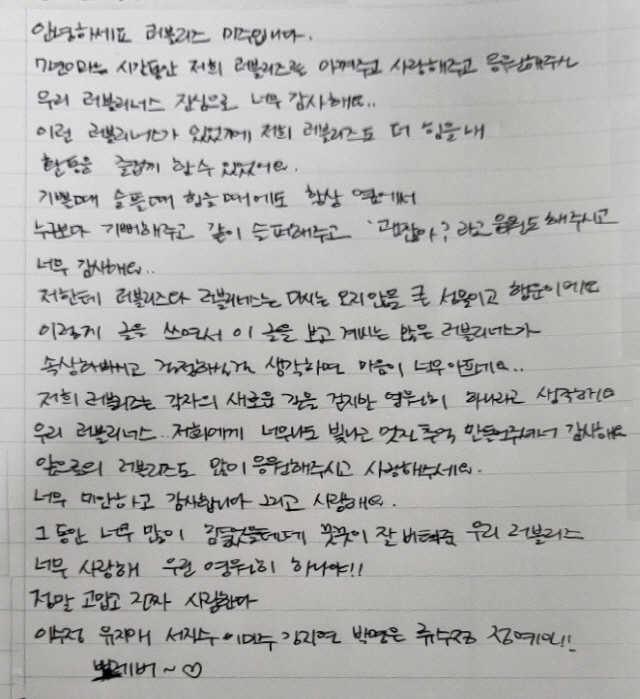 안녕하세요 러블리즈 미주입니다.
7년이라는 시간동안 저희 러블리즈를 아껴주고 사랑해주고 응원해주신
우리 러블리너스 진심으로 너무 감사해요..
이런 러블리너스가 있었기에 저희 러블리즈도 더 힘을내
활동을 즐겁게 할수 있었어요.
기쁠때 슬플때 힘들때에도 항상 옆에서
누구보다 기뻐해주고 같이 슬퍼해주고 '괜찮아? 라고 응원도 해주시고
너무 감사해요..
저한테 러블리즈와 러블리너스는 다시는 오지않을 큰 선물이고 행운이에요
이렇게 글을 쓰면서 이 글을 보고 계시는 많은 러블리너스가
속상해하시고 걱정하실걸 생각하면 마음이 너무아프네요..
저희 러블리즈는 각자의 새로운 길을 걷지만 영원히 하나라고 생각해요
우리 러블리너스.. 저희에게 너무나도 빛나고 멋진 추억 만들어주셔서 감사해요
앞으로의 러블리즈도 많이 응원해주시고 사랑해주세요.
너무 미안하고 감사합니다 그리고 사랑해요.
그동안 너무 많이 힘들었을텐데 꿋꿋이 잘 버텨준 우리 러블리즈
너무 사랑해 우린 영원히 하나야!!
정말 고맙고 진짜 사랑한다
이수정 유지애 서지수 이미주 김지연 박명은 류수정 정예인!!
뽀레버~♡